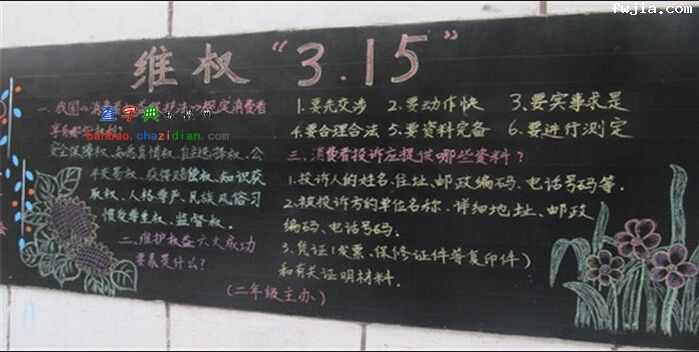 fwjia.com
维权“3.15”
一、我国《消费者权益保护法》规定消费者
享有哪些权利？
查字典
banbao.chazidian.com
安全保障权、知悉真情权、自主选择权、公
平交易权、获得赔偿权、知识获
取权、人格尊严、民族风俗习
惯受尊重权、监督权。
二、维护权益六大成功
要素是什么？
1.要先交涉 2.要动作快 3.要实事求是
4.要合理合法 5.要资料完备 6.要进行测定
三、消费者投诉应提供哪些资料？
1.投诉人的姓名、住址、邮政编码、电话号码等.
2.被投诉方的单位名称、详细地址、邮政
编码、电话号码.
3.凭证(发票、保修证件等复印件)
和有关证明材料.
(二年级主办)